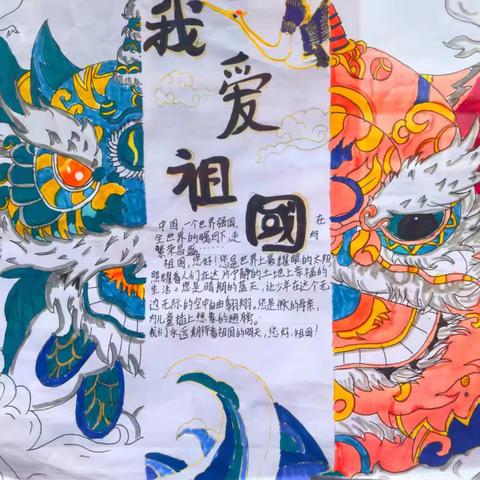 我
爱
祖
國
中国,一个世界强国, 在
全世界的瞩目下,走
繁荣昌盛……
祖国,您好!您是世界上最耀眼的太阳
照耀着人们在这片宁静的土地上幸福的
生活。您是晴朗的蓝天,让少年在这个无
边无际的空中自由翱翔,您是 的母亲,
为儿童插上想象的翅膀。
我们永远期待着祖国的明天,您好,祖国!